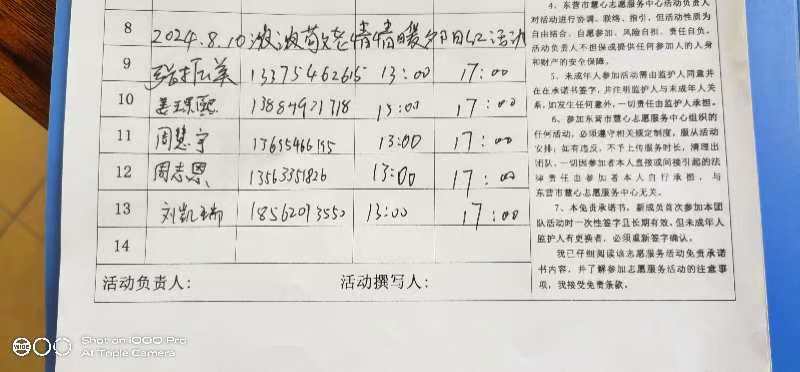 8 2024.8.10 情情暖夕阳红活动
9 13375462615 13:00 17:00
10 姜 熙 13884921718 13:00 17:00
11 周慧宇 13:00 17:00
12 周志恩 13563351826 13:00 17:00
13 刘凯瑞 18562093550 13:00 17:00
14
活动负责人: 活动撰写人:
4、东营市慧心志愿服务中心活动负责人
对活动进行协调、联络、指引,但活动性质为
自由结合、自愿参加、风险自担、责任自负,
活动负责人不担保或提供任何参加人的人身
和财产的安全保障。
5、未成年人参加活动需由监护人同意并
在在承诺书签字,并注明监护人与未成年人关
系,如发生任何意外,一切责任由监护人承担。
6、参加东营市慧心志愿服务中心组织的
任何活动,必须遵守相关规定制度,服从活动
安排;如有违反,不予上传服务时长,清理出
团队。一切因参加者本人直接或间接引起的法
律责任由参加者本人自行承担,与
东营市慧心志愿服务中心无关。
7、本免责承诺书,新成员首次参加本团
队活动时一次性签字且长期有效。但未成年人
监护人有更换者,必须重新签字确认。
我已仔细阅读该志愿服务活动免责承诺
书内容,并了解参加志愿服务活动的注意事
项,我接受免责条款。
WIDE
Shot on 1000 Pro
AI Triple Camera